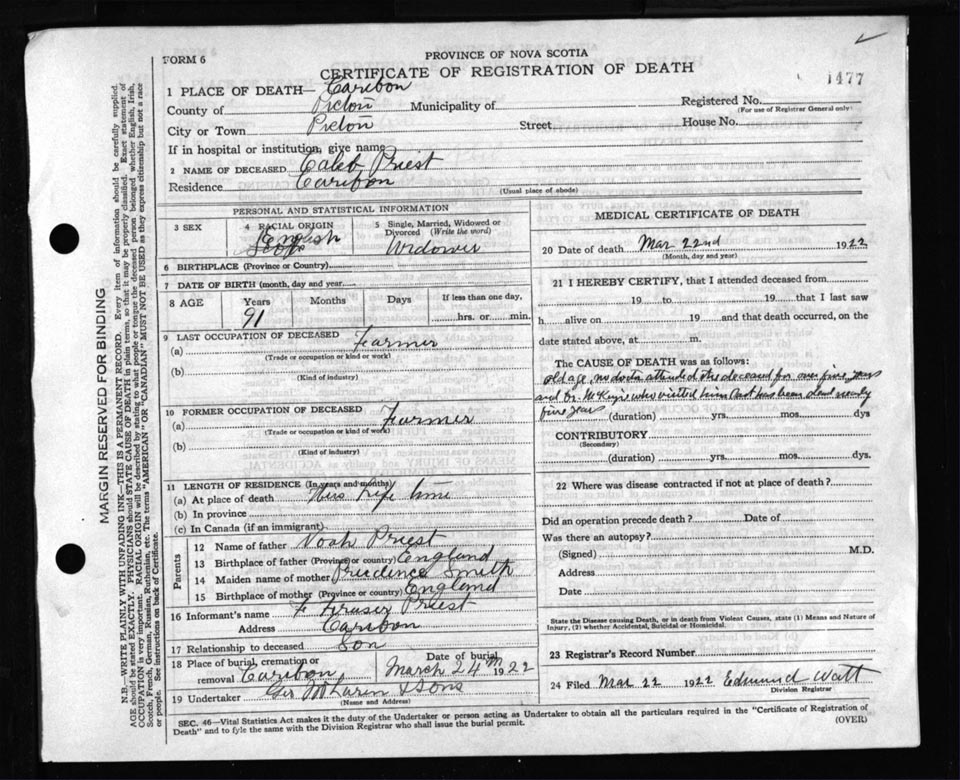 PROVINCE OF NOVA SCOTIA
FORM 6
CERTIFICATE OF REGISTRATION OF DEATH
1477
1 PLACE OF DEATH— Caribou
County of Pictou Municipality of Registered No.
(For use of Registrar General only)
City or Town Pictou Street House No.
If in hospital or institution, give name
2 NAME OF DECEASED Caleb Priest
Residence Caribou
(Usual place of abode)
PERSONAL AND STATISTICAL INFORMATION
3 SEX
4 RACIAL ORIGIN
English
5 Single, Married, Widowed or Divorced (Write the word)
Widower
6 BIRTHPLACE (Province or Country)
7 DATE OF BIRTH (month, day and year
8 AGE Years Months Days If less than one day,
91
hrs. or min.
9 LAST OCCUPATION OF DECEASED
(a) Farmer
(Trade or occupation or kind or work)
(b)
(Kind of industry)
10 FORMER OCCUPATION OF DECEASED
(a) Farmer
(Trade or occupation or kind of work)
(b)
(Kind of industry)
11 LENGTH OF RESIDENCE (In years and months)
(a) At place of death His Life time
(b) In province
(c) In Canada (if an immigrant)
Parents
12 Name of father Noah Priest
13 Birthplace of father (Province or country) England
14 Maiden name of mother Pruedence Smith
15 Birthplace of mother (Province or country) England
16 Informant's name F Fraser Priest
Address Caribou
17 Relationship to deceased Son
18 Place of burial, cremation or removal Caribou
Date of burial
March 24th 1922
19 Undertaker & Sons
(Name and Address)
MEDICAL CERTIFICATE OF DEATH
20 Date of death Mar 22nd 1922
(Month, day and year)
21 I HEREBY CERTIFY, that I attended deceased from
19 to 19 that I last saw
h alive on 19 and that death occurred, on
date stated above, at m.
The CAUSE OF DEATH was as follows:
old age, no doctor attended the deceased for over five years
and Dr. who visited him last has been dead nearly
five years (duration) yrs. mos. dys
CONTRIBUTORY
(Secondary)
(duration) yrs. mos. dys.
22 Where was disease contracted if not at place of death?
Did an operation precede death? Date of
Was there an autopsy?
(Signed) M.D.
Address
Date
State the Disease causing Death, or in death from Violent Causes, state (1) Means and Nature of Injury, (2) whether Accidental, Suicidal or Homicidal.
23 Registrar's Record Number
24 Filed Mar 22 1922 Edmund Watt
Division Registrar
SEC. 46—Vital Statistics Act makes it the duty of the Undertaker or person acting as Undertaker to obtain all the particulars required in the "Certificate of Registration of
Death" and to fyle the same with the Division Registrar who shall issue the burial permit.
(OVER)
MARGIN RESERVED FOR BINDING
N.B.—WRITE PLAINLY WITH UNFADING INK—THIS IS A PERMANENT RECORD. Every item of information should be carefully supplied.
AGE should be stated EXACTLY. PHYSICIANS should STATE CAUSE OF DEATH in plain terms, so that it may be properly classified. Exact statement of
OCCUPATION is very important. RACIAL ORIGIN will be described by stating to what people or tongue the deceased person belonged whether English, Irish,
Scotch, French, German, Russian, Ruthenian, etc. The terms "AMERICAN" OR "CANADIAN" MUST NOT BE USED as they express citizenship but not a race
or people. See instructions on back of Certificate.